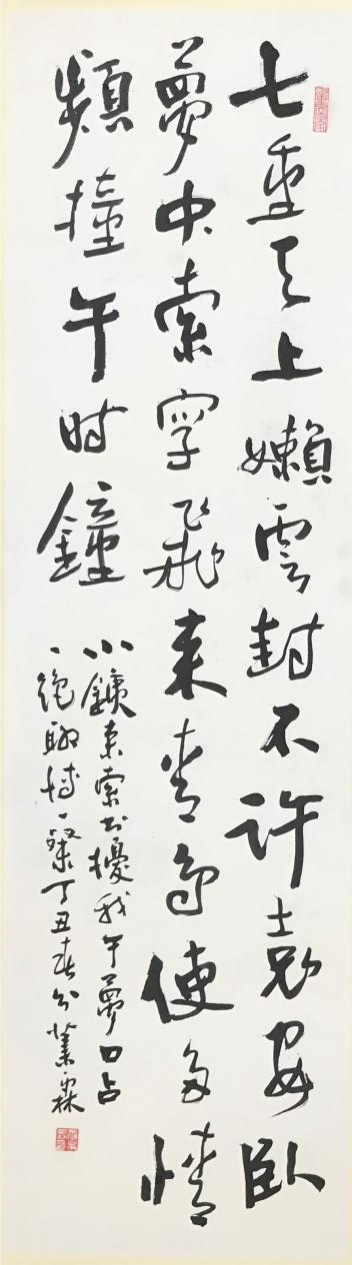 七重天上嬾雲封不許袁安臥
夢中索字飛來青鳥使多情
頻撞午時鐘
小來索書擾我午夢口占
一絕聊博一粲丁丑春分業霖